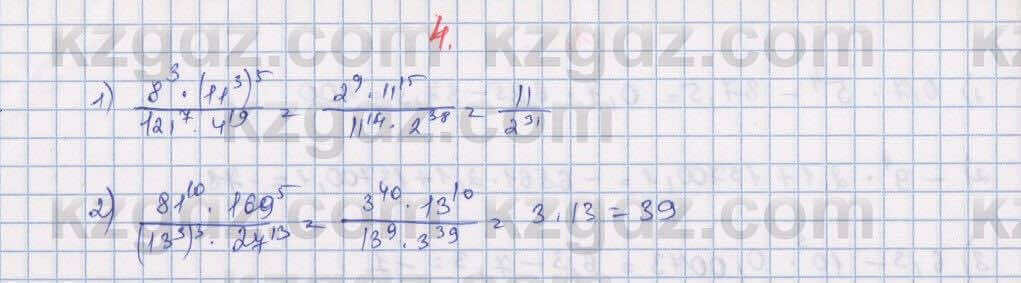 kzgdz.com kzgdz.com
4.
1) \frac{8^3 \cdot (11^3)^5}{121^7 \cdot 4^{19}} = \frac{2^9 \cdot 11^{15}}{11^{14} \cdot 2^{38}} = \frac{11}{2^{31}}
kzgdz.com
2) \frac{81^{10} \cdot 169^5}{(13^3)^3 \cdot 27^{13}} = \frac{3^{40} \cdot 13^{10}}{13^9 \cdot 3^{39}} = 3 \cdot 13 = 39
kzgdz.com kzgdz.com